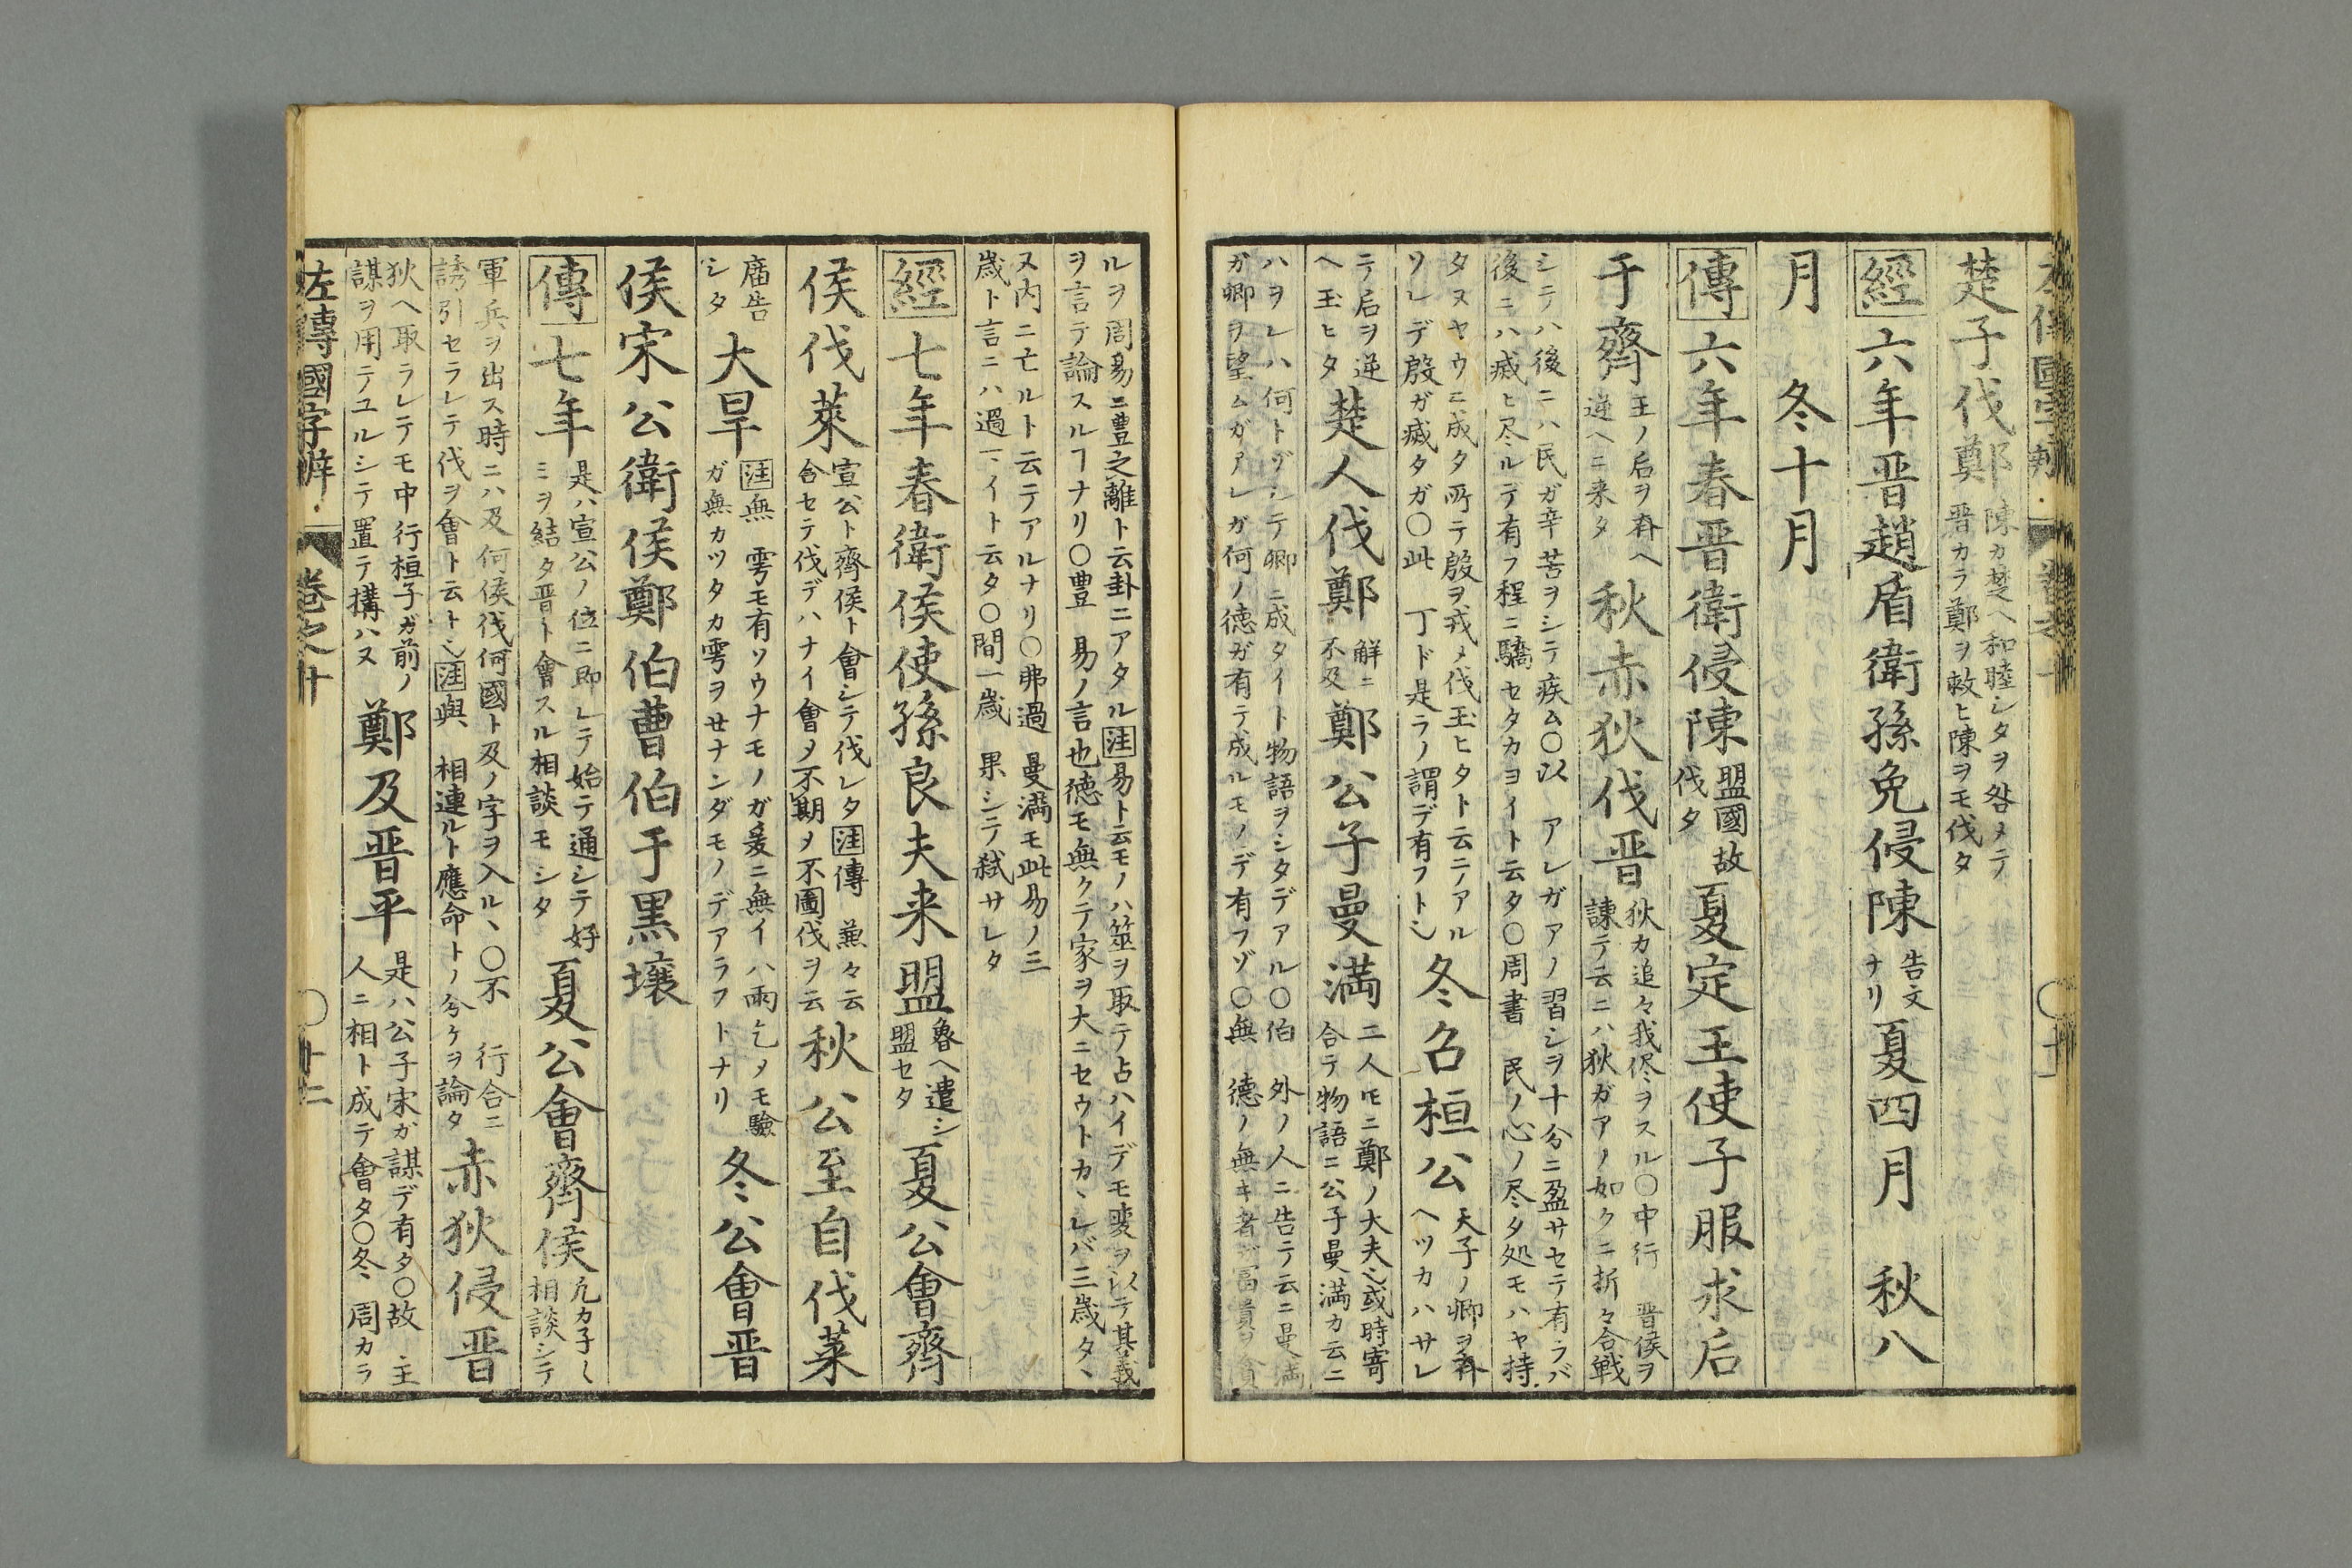 楚子伐鄭 陳カ楚ヘ和睦シタヲ咎メテ
晋カラ鄭ヲ救ヒ陳ヲモ伐タ
經六年晋趙盾衛孫免侵陳 告文
ナリ 夏四月 秋八
月 冬十月
傳六年春晋衛侵陳 盟國故
伐タ 夏定王使子服求后
于齊 王ノ后ヲ斉ヘ
逆ヘニ来タ 秋赤狄伐晋 狄カ追々我侭ヲスル〇中行 晋侯ヲ
諌テ云ニハ狄ガアノ如クニ折々合戦
シテハ後ニハ民ガ辛苦ヲシテ疾ム〇以 アレガアノ習シヲ十分ニ盈サセテ有ラバ
後ニハ滅ヒ尽ルテ有フ程ニ驕セタカヨイト云タ〇周書 民ノ心ノ尽タ処モハヤ持
タヌヤウニ成タ所テ殷ヲ戎メ伐玉ヒタト云ニアル
ソレデ殷ガ滅タガ〇此 丁ド是ラノ謂デ有フトシ 冬召桓公 天子ノ卿ヲ斉
ヘツカハサレ
テ后ヲ逆
ヘ玉ヒタ 楚人伐鄭 解ニ
不及 鄭公子曼満 二人モニ鄭ノ大夫也或時寄
合テ物語ニ公子曼満カ云ニ
ハヲレハ何トゾシテ卿ニ成タイト物語ヲシタデアル〇伯 外ノ人ニ告テ云ニ曼満
ガ卿ヲ望ムガアレガ何ノ徳ガ有テ成ルモノデ有フゾ〇無 德ノ無キ者ガ富貴ヲ貪
ルヲ周易ニ豊之離ト云卦ニアタル注易ト云モノハ筮ヲ取テ占ハイデモ変ヲ以テ其義
ヲ言テ論スルヿナリ〇豊 易ノ言也徳モ無クテ家ヲ大ニセウトカヽレバ三歳タヽ
ヌ内ニ亡ルト云テアルナリ〇弗過 曼満モ此易ノ三
歳ト言ニハ過マイト云タ〇間一歳 果シテ弑サレタ
經七年春衛侯使孫良夫来盟 魯ヘ遣シ
盟セタ 夏公會齊
侯伐萊 宣公ト齊侯ト會シテ伐レタ注傳 兼々云
合セテ伐デハナイ會メ不期メ不圖伐ヲ云 秋公至自伐莱
廟告
シタ 大旱 注無 雩モ有ソウナモノガ爰ニ無イハ雨乞メモ驗
ガ無カツタカ雩ヲせナンダモノデアラフトナリ 冬公會晋
侯宋公衛侯鄭伯曹伯于黒壌
傳七年 是ハ宣公ノ位ニ即レテ始テ通シテ好
ミヲ結タ晋ト會スル相談モシタ 夏公會齊侯 九カ子〱
相談シテ
軍兵ヲ出ス時ニハ及何侯伐何國ト及ノ字ヲ入ル丶〇不 行合ニ
誘引セラレテ伐ヲ會ト云トシ注與 相連ルト應命トノ分ケヲ論タ 赤狄侵晋
狄ヘ取ラレテモ中行桓子ガ前ノ
謀ヲ用テユルシテ置テ搆ハヌ 鄭及晋平 是ハ公子宋ガ謀デ有タ〇故 主
人ニ相ト成テ會タ〇冬 周カラ
左傳國字辨 巻之十 〇十二